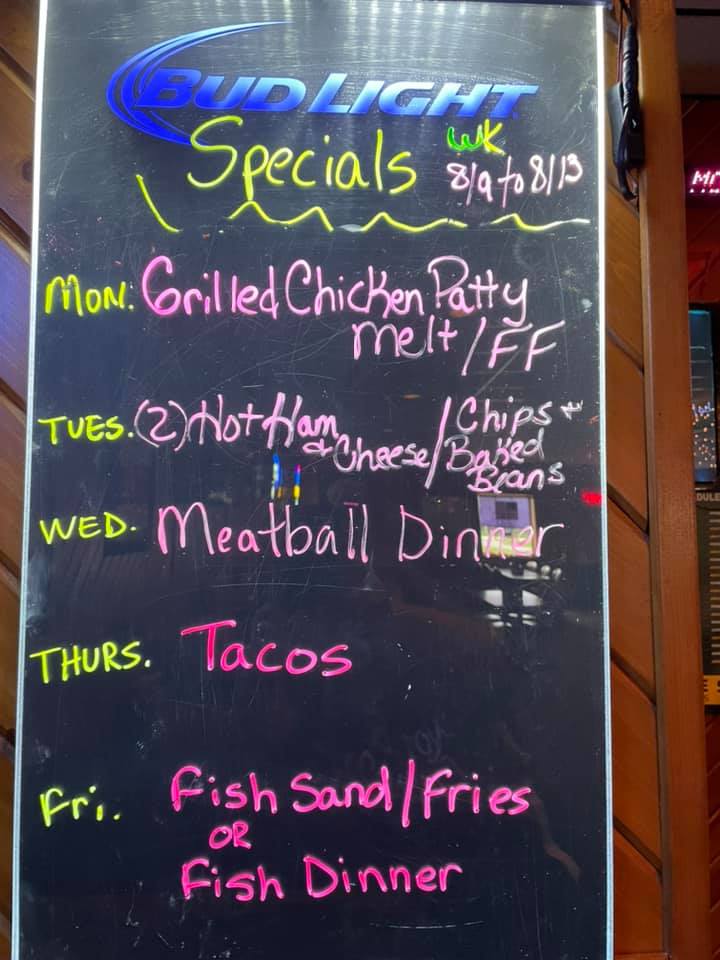 BUD LIGHT
Specials WK
8/9 to 8/13
MON. Grilled Chicken Patty
melt/FF
TUES. (2) Hot Ham & Cheese/Chips +
Baked
Beans
WED. Meatball Dinner
THURS. Tacos
Fri. Fish Sand/Fries
OR
Fish Dinner